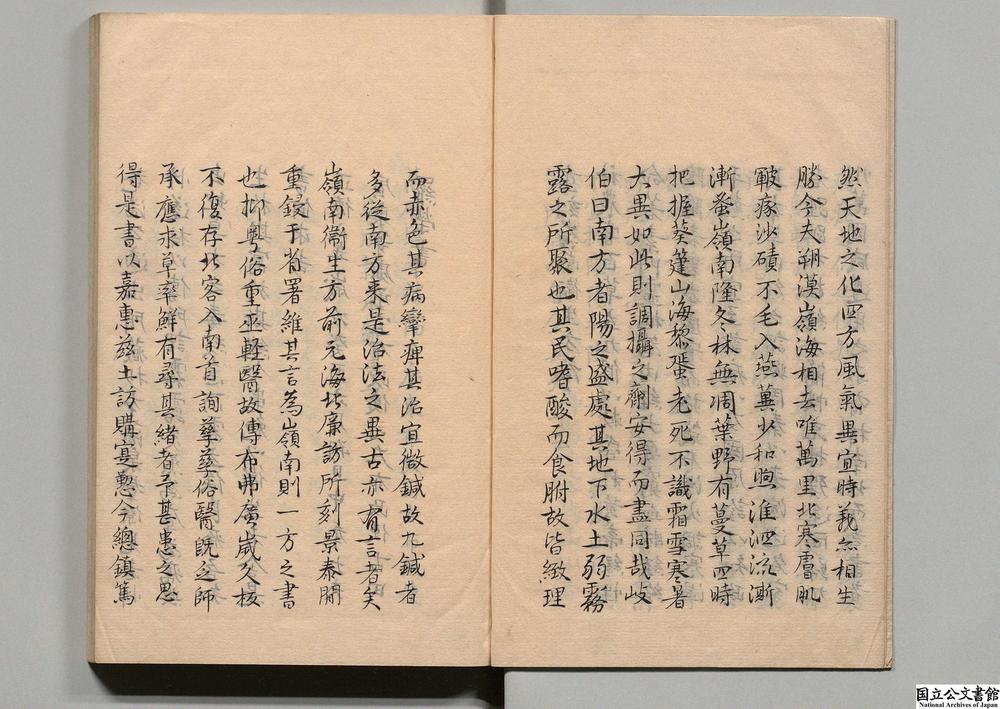 然天地之化四方風氣異宜時義無相生
勝今夫朔漠嶺海相去唯萬里北寒膚肌
皸瘃沙磧不毛入燕冀少和煦淮泗流澌
漸發嶺南隆冬林無凋葉野有蔓草四時
把握葵箑山海黎蜑老死不識霜雪寒暑
大異如此則調攝之劑安得而盡同哉岐
伯曰南方者陽之盛處其地下水土弱霧
露之所聚也其民嗜酸而食胕故皆緻理
而赤色其病攣痺其治宜微鍼故九鍼者
多從南方来是治法之異古亦有言者矣
嶺南衛生方前元海北廉訪所刻景泰間
重鋟于省署維其言為嶺南則一方之書
也抑粤俗重巫軽醫故傳布弗廣歲久板
不復存北客入南首詢藥孽俗醫既乏師
承應求草率鮮有尋其緒者予甚患之思
得是書以嘉惠兹土訪購寔懃今總鎮篤
国立公文書館
National Archives of Japan